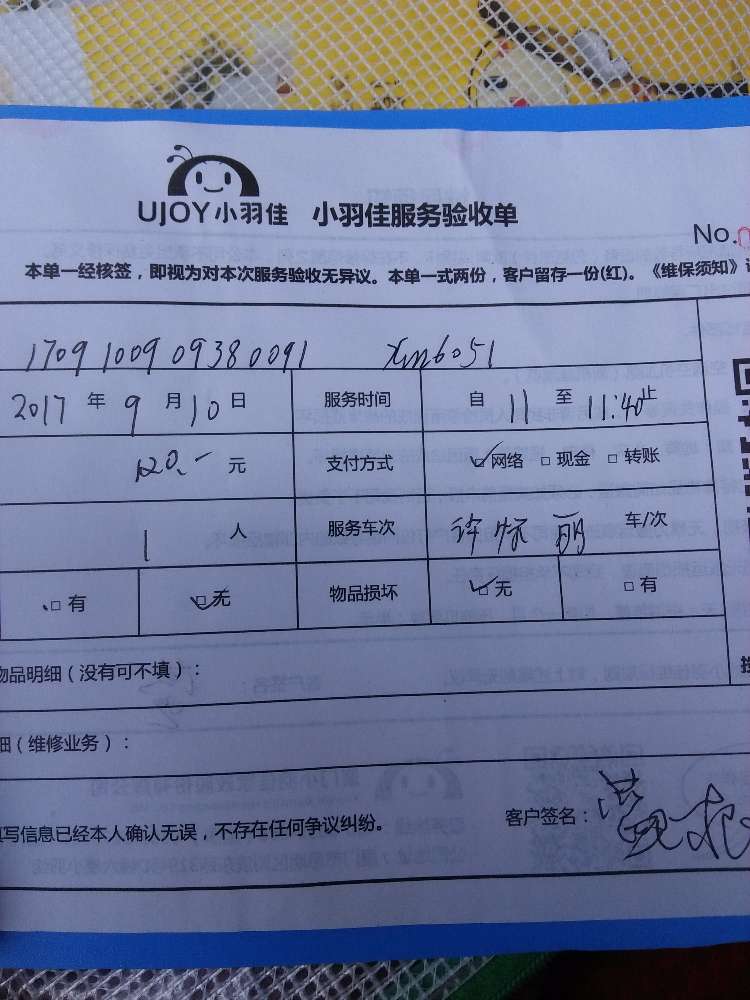 UJOY小羽佳 小羽佳服务验收单
No.
本单一经核签，即视为对本次服务验收无异议。本单一式两份，客户留存一份(红)。《维保须知》
1709100909380091 xm6051
2017 年 9 月 10 日 服务时间 自 11 至 11:40止
120.- 元 支付方式 ☑网络 □现金 □转账
1 人 服务车次 许标丽 车/次
□有 ☑无 物品损坏 ☑无 □有
物品明细（没有可不填）：
细（维修业务）：
填写信息已经本人确认无误，不存在任何争议纠纷。 客户签名：